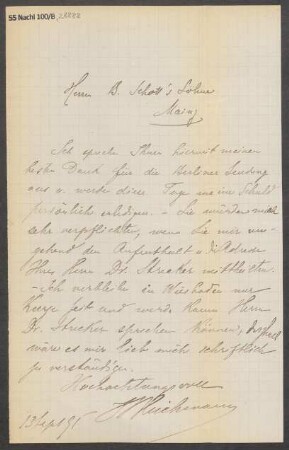 55 Nachl 100/B,
Herrn B. Schott's Söhne
Mainz
Ich spreche Ihnen hiermit meinen
besten Dank für die Berliner Sendung
aus u. werde dieser Tage meine Schuld
persönlich erledigen. – Sie würden mich
sehr verpflichten, wenn Sie mir um-
gehend den Aufenthalt u. die Adresse
Ihres Herrn Dr. Strecker mittheilten.
– Ich verbleibe in Wiesbaden nur
kurze Zeit und werde kaum Herrn
Dr. Strecker sprechen können, deshalb
wäre es mir lieb mich schriftlich
zu verständigen.
Hochachtungsvoll
13 Sept 95